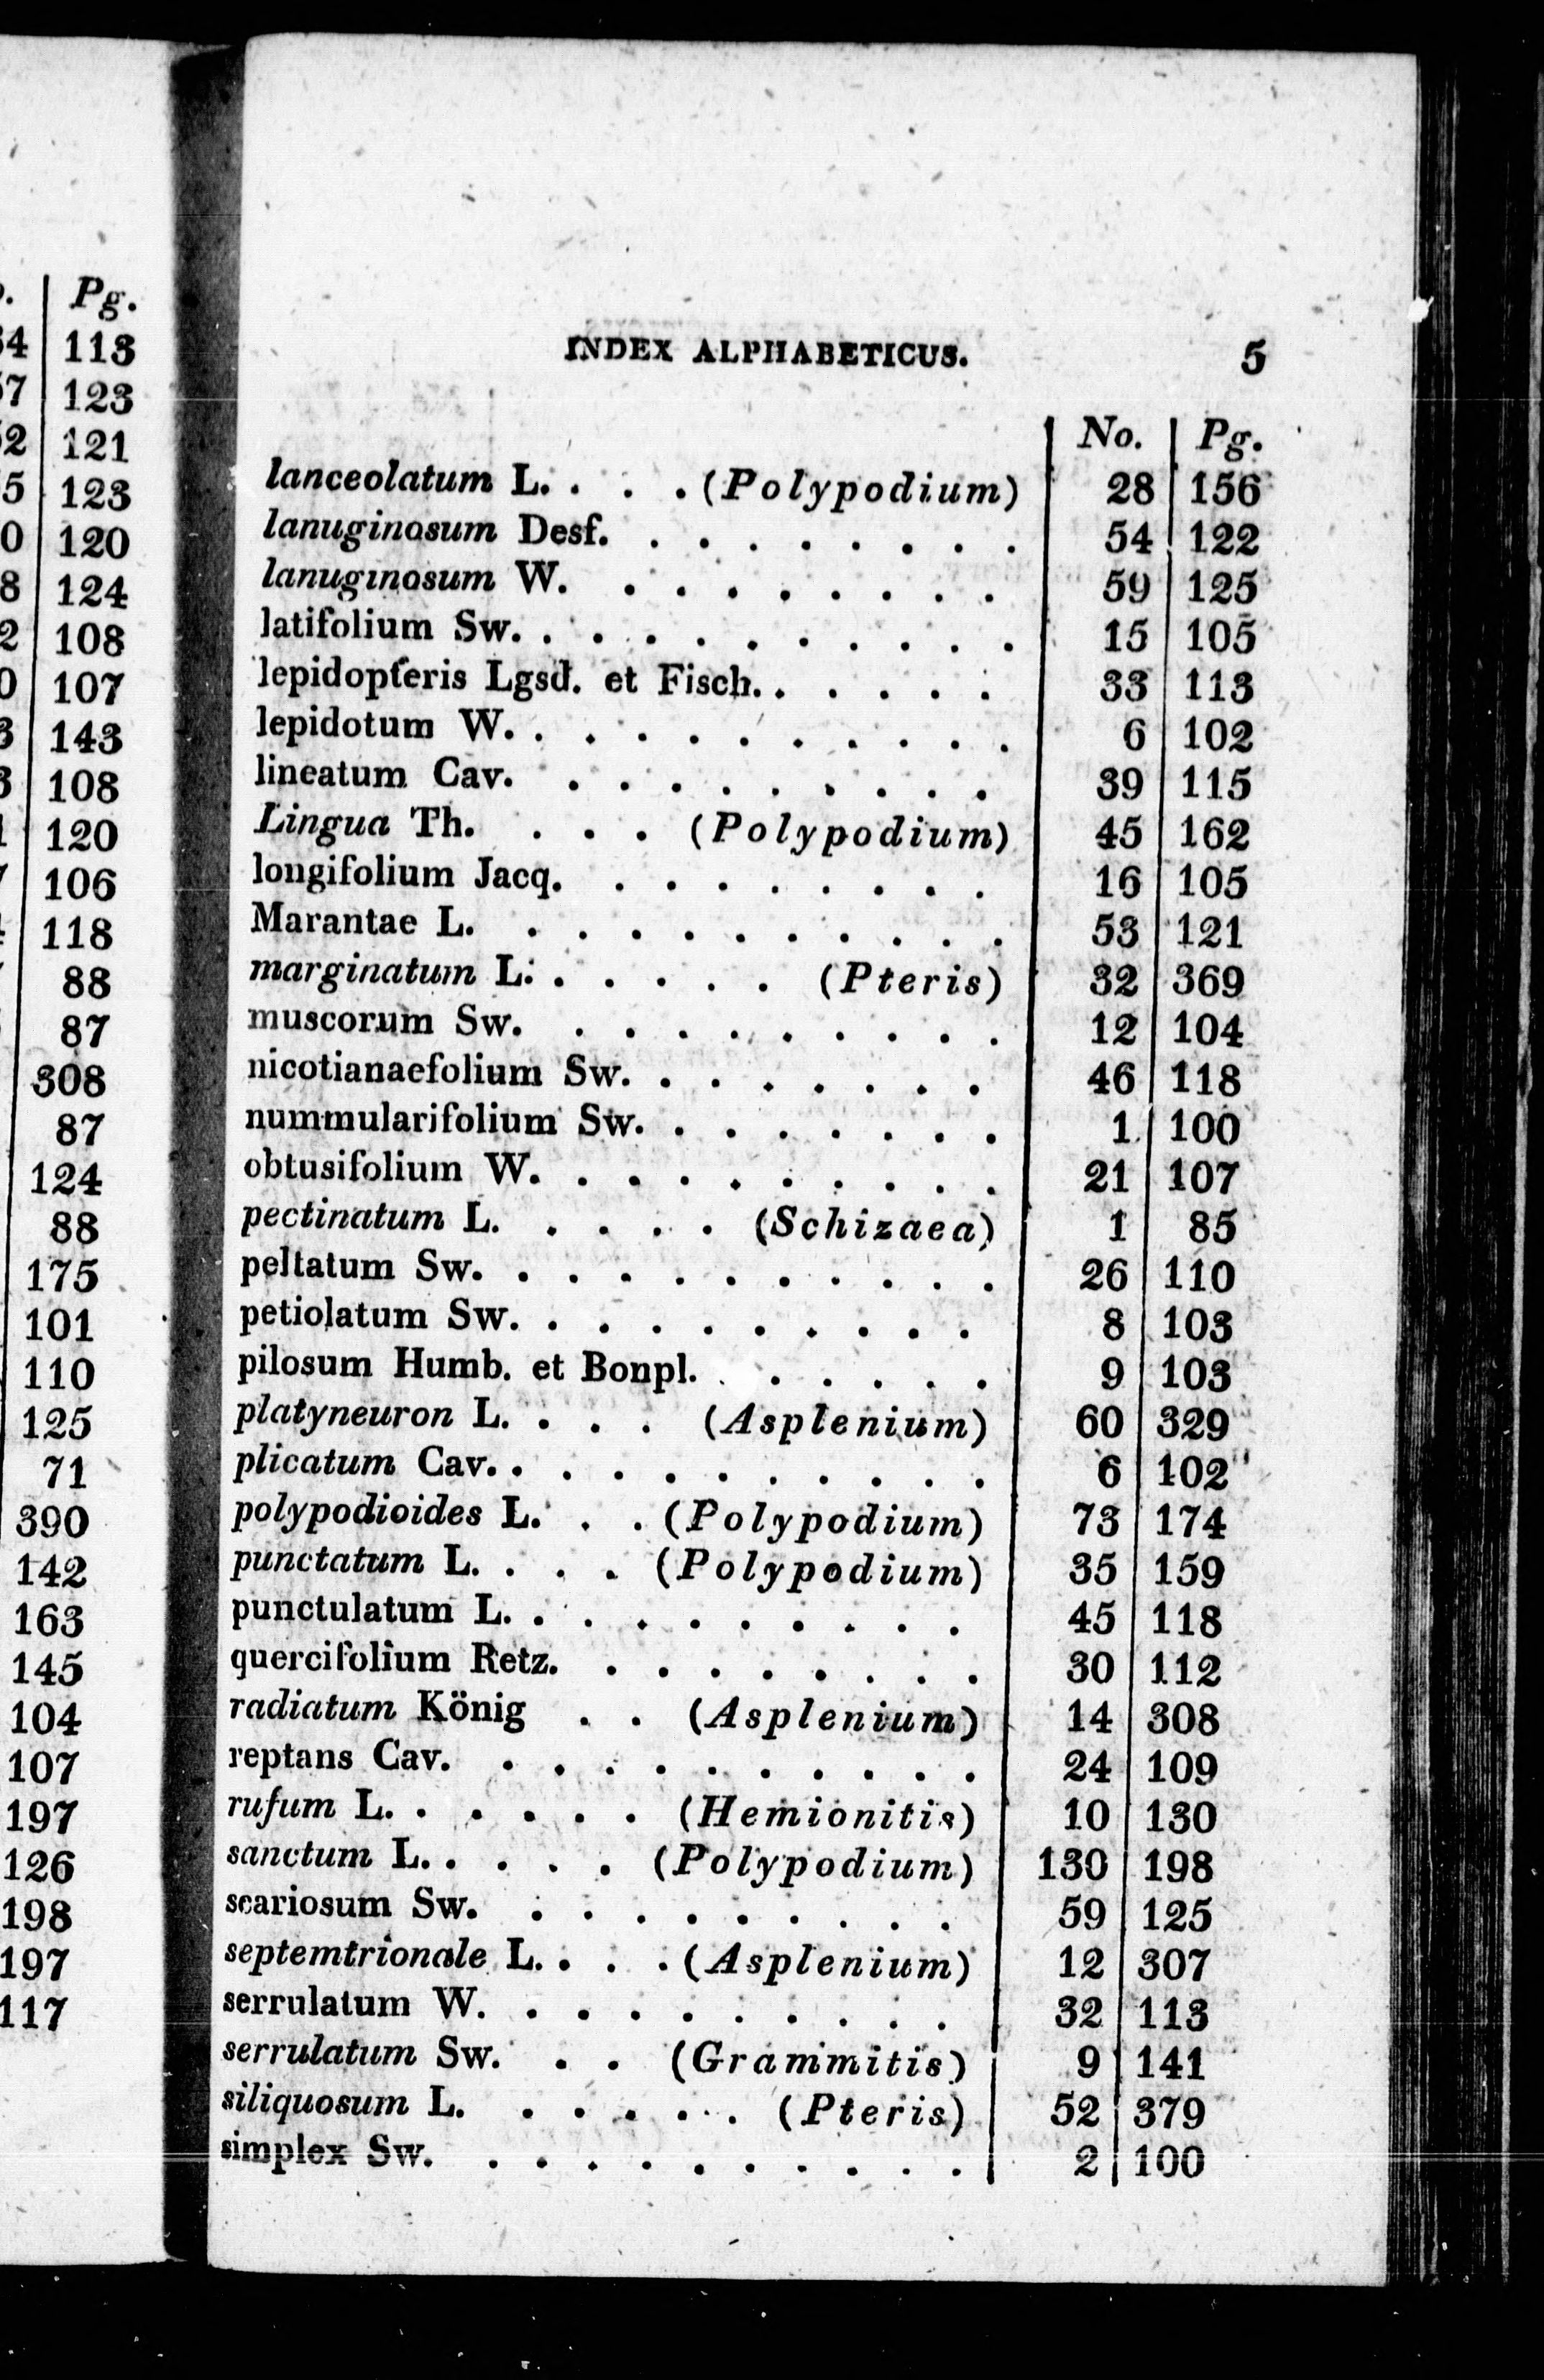 Pg.
113
123
121
123
120
124
108
107
143
108
120
106
118
88
87
308
87
124
88
175
101
110
125
71
390
142
163
145
104
107
197
126
198
197
117
INDEX ALPHABETICUS. 5
No. Pg.
lanceolatum L. . . . (Polypodium) 28 156
lanuginosum Desf. . . . . . . . . 54 122
lanuginosum W. . . . . . . . . 59 125
latifolium Sw. . . . . . . . . . . 15 105
lepidopteris Lgsd. et Fisch. . . . . . 33 113
lepidotum W. . . . . . . . . . . 6 102
lineatum Cav. . . . . . . . . . 39 115
Lingua Th. . . . (Polypodium) 45 162
longifolium Jacq. . . . . . . . . 16 105
Marantae L. . . . . . . . . . . 53 121
marginatum L. . . . . . (Pteris) 32 369
muscorum Sw. . . . . . . . . . 12 104
nicotianaefolium Sw. . . . . . . . 46 118
nummularifolium Sw. . . . . . . . 1 100
obtusifolium W. . . . . . . . . . 21 107
pectinatum L. . . . . (Schizaea) 1 85
peltatum Sw. . . . . . . . . . . 26 110
petiolatum Sw. . . . . . . . . . 8 103
pilosum Humb. et Bonpl. . . . . . . 9 103
platyneuron L. . . . (Asplenium) 60 329
plicatum Cav. . . . . . . . . . . 6 102
polypodioides L. . . (Polypodium) 73 174
punctatum L. . . . (Polypodium) 35 159
punctulatum L. . . . . . . . . . 45 118
quercifolium Retz. . . . . . . . . 30 112
radiatum König . . (Asplenium) 14 308
reptans Cav. . . . . . . . . . . 24 109
rufum L. . . . . . (Hemionitis) 10 130
sanctum L. . . . . (Polypodium) 130 198
scariosum Sw. . . . . . . . . . 59 125
septemtrionale L. . . . (Asplenium) 12 307
serrulatum W. . . . . . . . . . 32 113
serrulatum Sw. . . (Grammitis) 9 141
siliquosum L. . . . . . (Pteris) 52 379
simplex Sw. . . . . . . . . . . 2 100